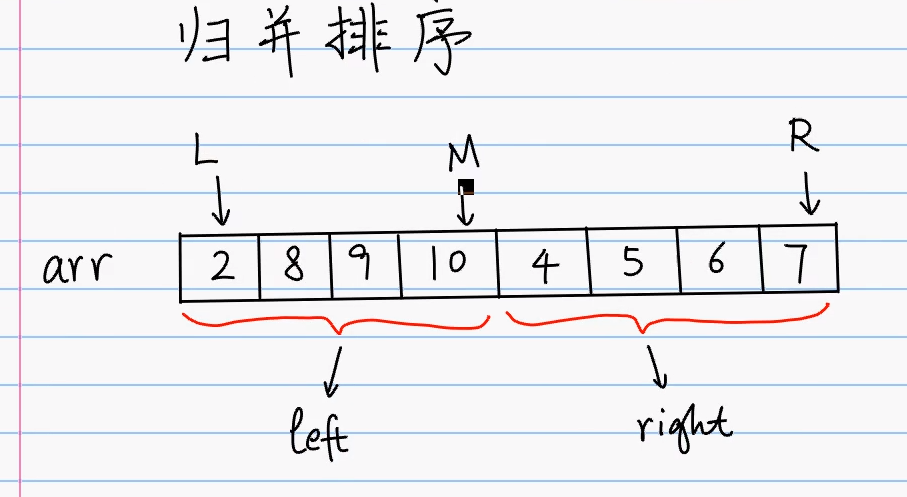 归并排序
L M R
arr 2 8 9 10 4 5 6 7
left right